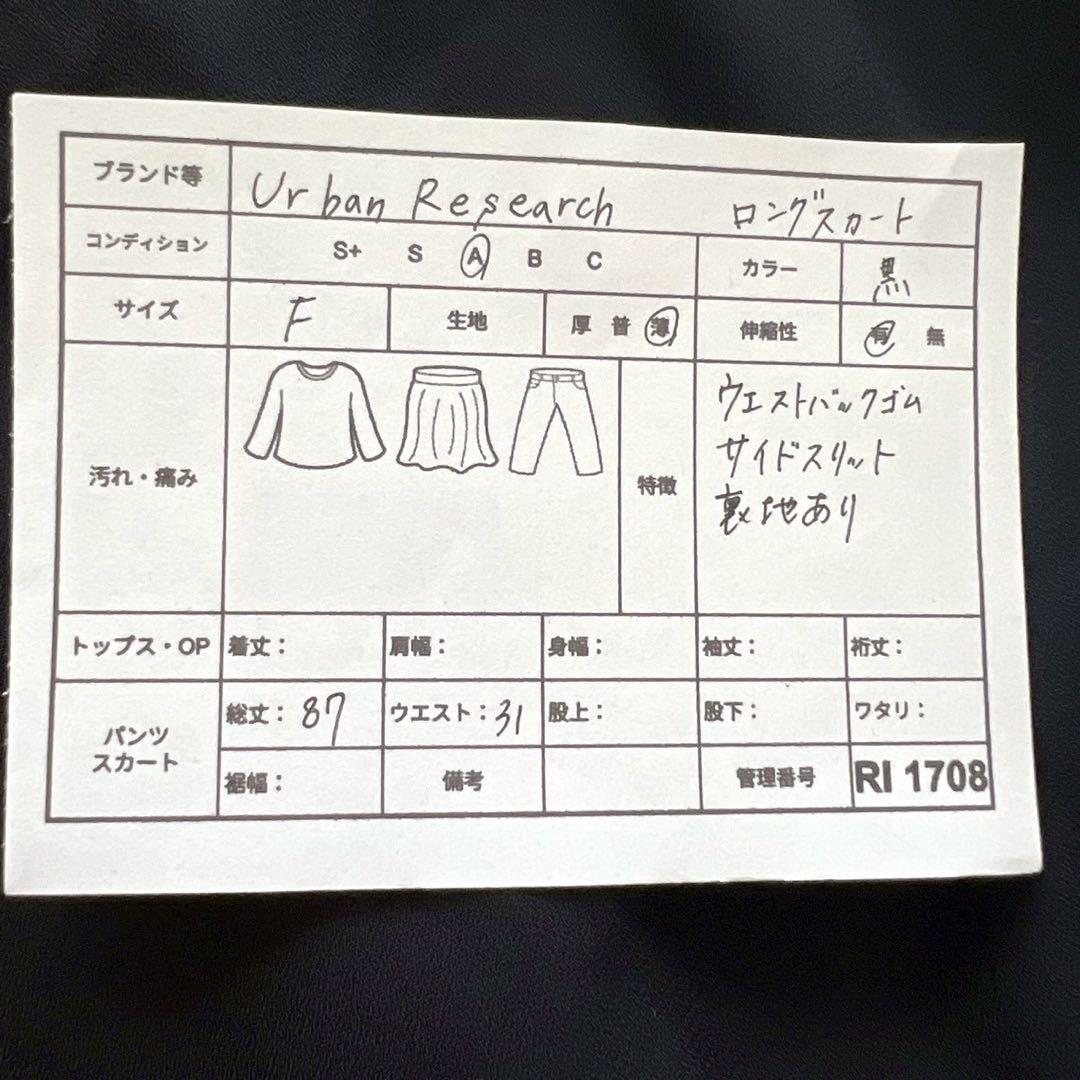 ブランド等 Urban Research ロングスカート
コンディション S+ S A B C カラー 黒
サイズ F 生地 厚 普 薄 伸縮性 有 無
汚れ・痛み 特徴
ウエストバックゴム
サイドスリット
裏地あり
トップス・OP 着丈： 肩幅： 身幅： 袖丈： 裄丈：
パンツ
スカート
総丈：87 ウエスト：31 股上： 股下： ワタリ：
裾幅： 備考 管理番号 RI 1708